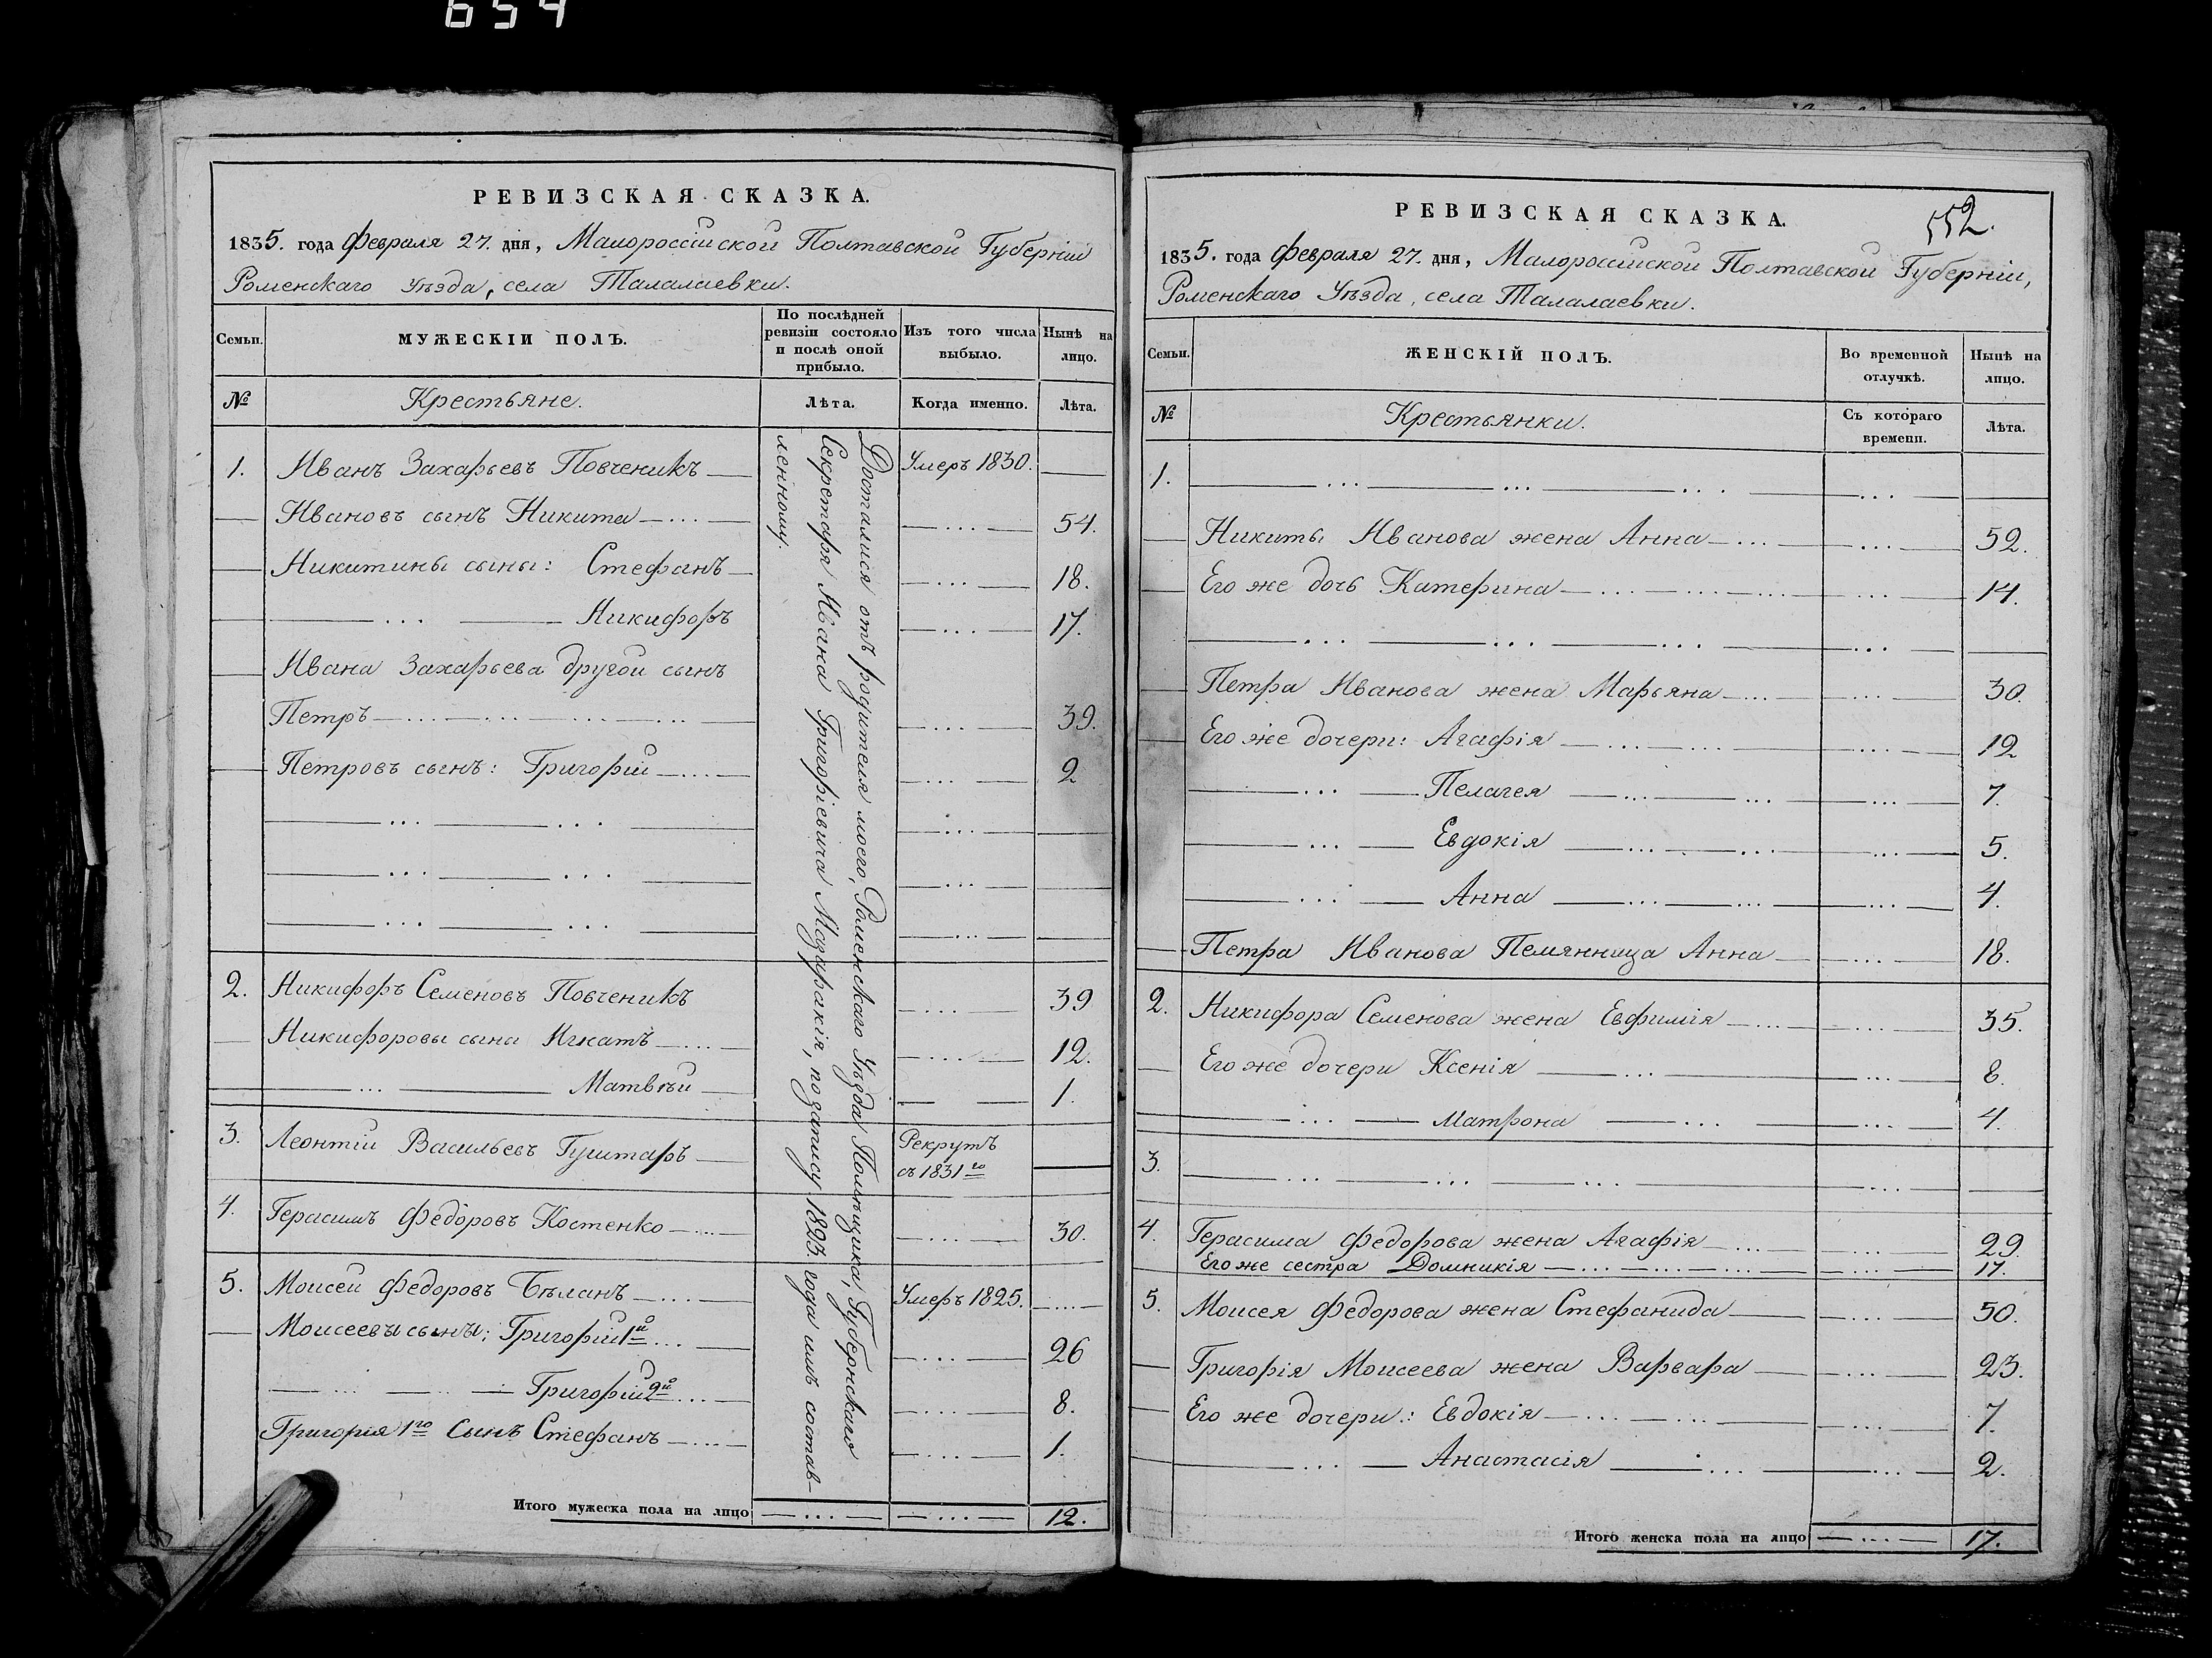 654
РЕВИЗСКАЯ СКАЗКА.
1835. года Февраля 27. дня, Малороссійской Полтавской Губерніи
Роменскаго Уѣзда, села Талалаевки.
Семьи.
МУЖЕСКІЙ ПОЛЪ.
По послѣдней ревизіи состояло и послѣ оной прибыло.
Изъ того числа выбыло.
Нынѣ на лицо.
№
Крестьяне.
Лѣта.
Когда именно.
Лѣта.
Достались отъ родителя моего, Роменскаго Уѣзда Помѣщика, Губернскаго
Секретаря Ивана Григоріевича Мазаракія, по запису 1823 года имъ состав-
ленному.
1. Иванъ Захарьевъ Повченикъ — Умеръ 1830. —
— Ивановъ сынъ Никита — ... — — ... — 54.
— Никитины сыны: Стефанъ — — ... — 18.
— — ... — Никифоръ — ... — 17.
— Ивана Захарьева другой сынъ
Петръ — ... — ... — ... — ... — — ... — 39.
— Петровъ сынъ: Григорій — ... — — ... — 2
— ... — ... — — ... — —
— ... — ... — — ... — —
— ... — ... — — ... — —
2. Никифоръ Семеновъ Повченикъ — ... — 39
— Никифоровы сыны Игнатъ — ... — — ... — 12.
— ... — Матвѣй — — — 1.
3. Леонтій Васильевъ Гуштаръ — Рекрутъ
съ 1831го —
4. Герасимъ Федоровъ Костенко — ... — — ... — 30.
5. Моисей Федоровъ Бѣланъ — ... — Умеръ 1825. — ... —
— Моисеевы сыны: Григорій 1й ... — — ... — 26
— ... — ... — Григорій 2й ... — — ... — 8.
Григорія 1го Сынъ Стефанъ — ... — — ... — 1.
Итого мужеска пола на лицо — ... — — ... — 12.
РЕВИЗСКАЯ СКАЗКА.
552.
1835. года Февраля 27. дня, Малороссійской Полтавской Губерніи,
Роменскаго Уѣзда, села Талалаевки.
Семьи.
ЖЕНСКІЙ ПОЛЪ.
Во временной отлучкѣ.
Нынѣ на лицо.
№
Крестьянки.
Съ котораго времени.
Лѣта.
1. — ... — ... — ... — — ... — —
— Никиты Иванова жена Анна — ... — — ... — 52.
— Его же дочь Катерина — ... — ... — ... — — ... — 14.
— ... — ... — ... — — ... — —
— Петра Иванова жена Марьяна — ... — — ... — 30.
— Его же дочери: Агафія — ... — ... — — ... — 12
— ... — Пелагея — ... — ... — — ... — 7.
— ... — Евдокія — ... — ... — — ... — 5.
— ... — Анна — ... — ... — — ... — 4.
— Петра Иванова Племянница Анна — — ... — 18.
2. Никифора Семенова жена Евфимія — ... — — ... — 35.
— Его же дочери Ксенія — ... — — ... — 8.
— ... — Матрона — ... — — ... — 4.
3. — ... — ... — ... — — ... — —
4. Герасима Федорова жена Агафія — ... — — ... — 29.
Его же сестра Домникія — ... — ... — ... — — ... — 17.
5. Моисея Федорова жена Стефанида — — ... — 50.
— Григорія Моисеева жена Варвара — — ... — 23.
— Его же дочери: Евдокія — ... — ... — — ... — 7.
— ... — Анастасія — ... — — ... — 2.
Итого женска пола на лицо — ... — 17.